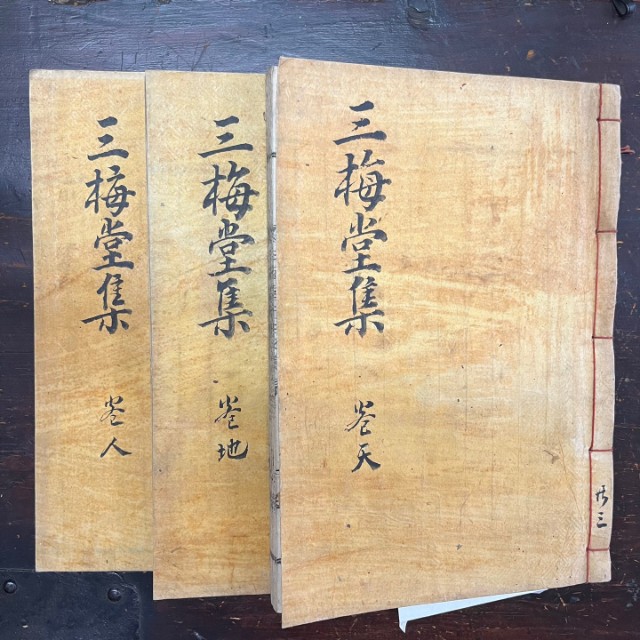 共三
三梅堂集 卷天
三梅堂集 卷地
三梅堂集 卷人